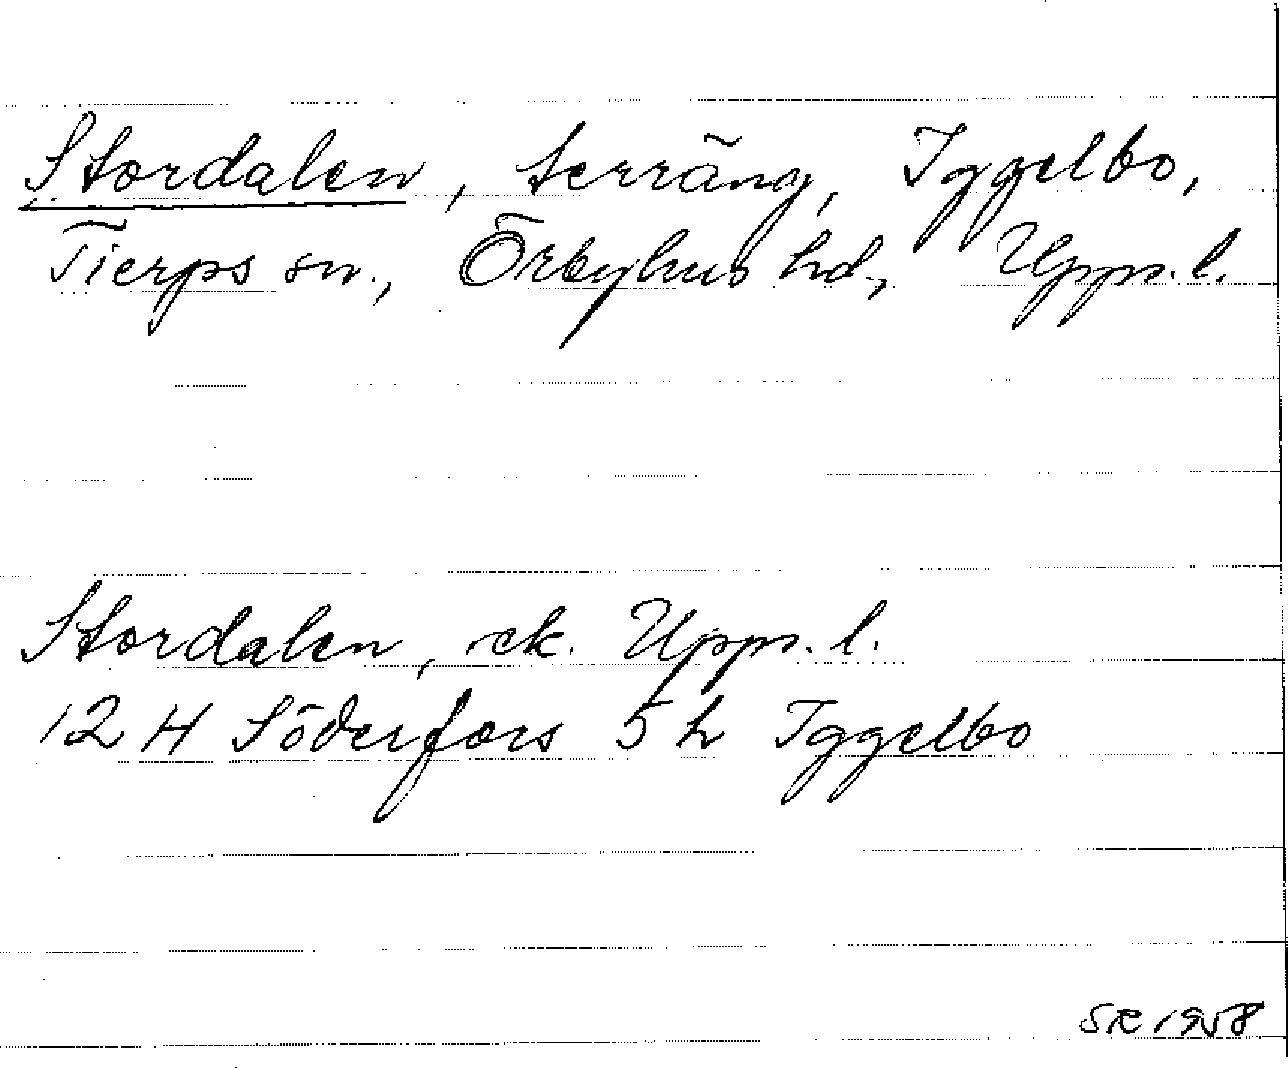 Stordalen, terräng, Iggelbo,
Tierps sn., Örbyhus hd, Upps. l.
Stordalen, ek. Upps. l.
12 H Söderfors 5 h Iggelbo
SR 1958